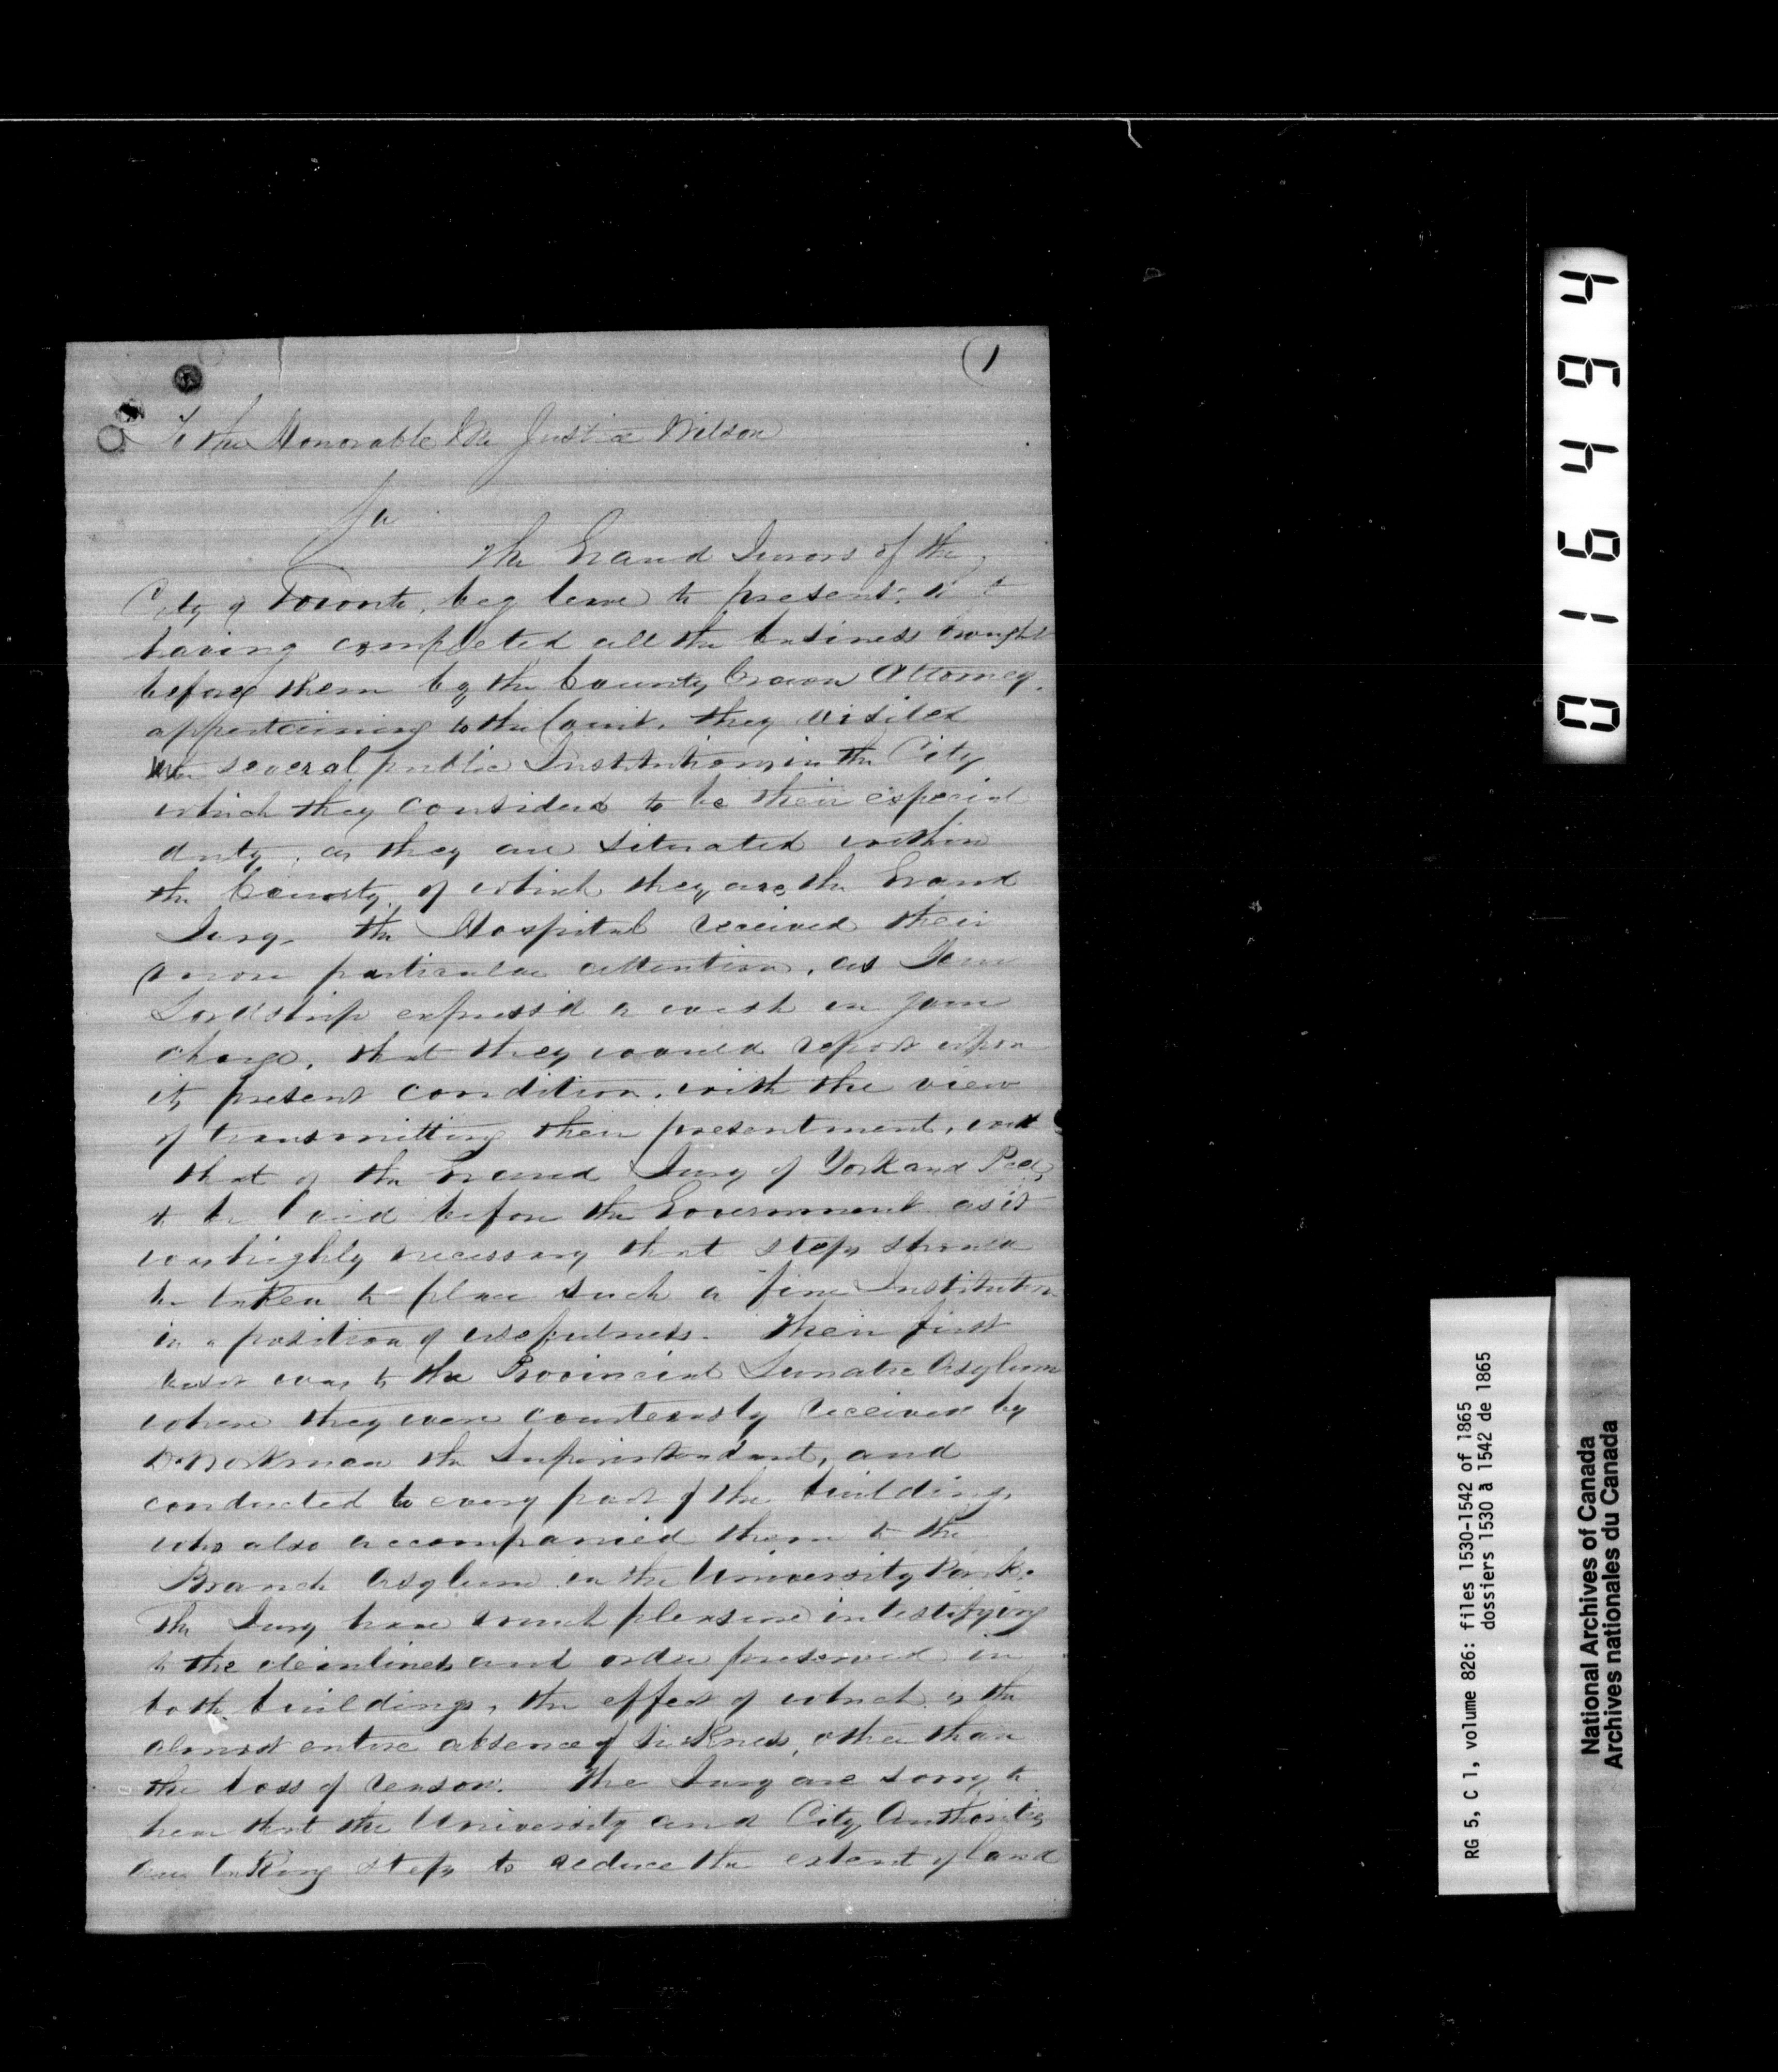 (1
To the Honorable Mr Justice Wilson
Sir
The Grand Jurors of the
City of Toronto, beg leave to present,
having completed all the business brought
before them by the County Crown Attorney,
appertaining to the Court, they visited
the several public Institutions in the City
which they considered to be their especial
duty, as they are situated within
the County, of which they are the Grand
Jury. The Hospital received their
more particular attention, as Your
Lordship express'd a wish in your
charge, that they would report upon
its present condition, with the view
of transmitting their presentment, and
that of the Grand Jury of York and Peel,
to be laid before the Government as it
was highly necessary that steps should
be taken to place such a fine Institution
in a position of usefulness. Their first
visit was to the Provincial Lunatic Asylum
where they were courteously received by
Dr Workman the Superintendant, and
conducted to every part of the building,
who also accompanied them to the
Branch Asylum in the University Park.
The Jury have much pleasure in testifying
to the cleanliness and order preserved in
both buildings, the effect of which is the
almost entire absence of sickness, other than
the loss of reason. The Jury are sorry to
hear that the University and City Authorities
are taking steps to reduce the extent of land
016494
RG 5, C 1, volume 826: files 1530-1542 of 1865
dossiers 1530 à 1542 de 1865
National Archives of Canada
Archives nationales du Canada